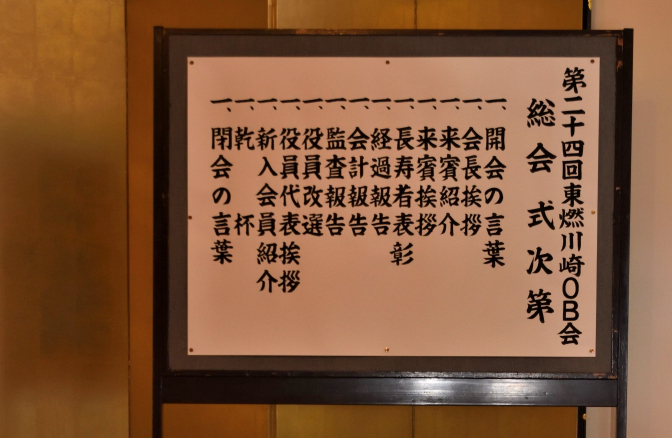 第二十四回東燃川崎OB会
総会式次第
一、開会の言葉
一、会長挨拶
一、来賓紹介
一、来賓挨拶
一、長寿者表彰
一、経過報告
一、会計報告
一、監査報告
一、役員改選
一、役員代表挨拶
一、新入会員紹介
一、乾杯
一、閉会の言葉